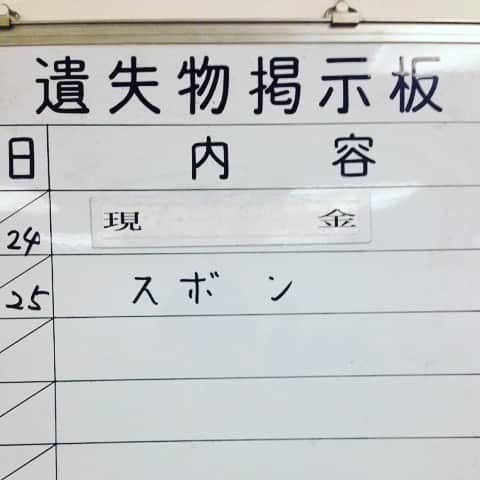 遺失物掲示板
日 内容
24 現金
25 スボン